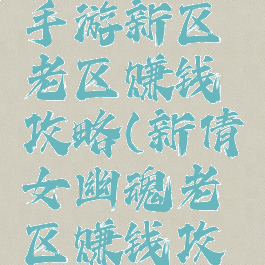 手游新区
老区赚钱
攻略(新倩
女幽魂老
区赚钱攻